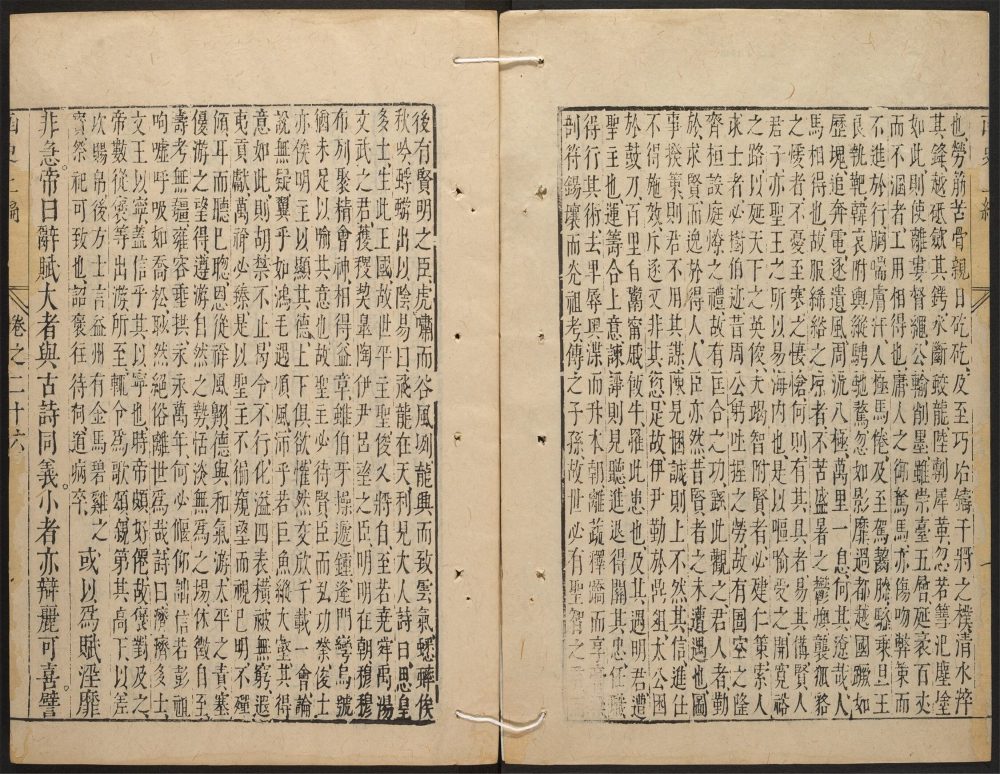 也勞筋苦骨親日矻矻及至巧冶鑄干將之樸清水焠
其鋒越砥斂其鍔水斷蛟龍陸剸犀革忽若篲氾塵塗
如此則使離婁督繩公輸削墨雖崇臺五層延袤百丈
而不溷者工用相得也庸人之御駑馬亦傷吻弊策而
不進於行胸喘膚汗人極馬倦及至駕齧膝驂乘旦王
良執靶韓哀附輿縱騁馳騖忽如影靡過都越國蹶如
歷塊追奔電逐遺風周流八極萬里一息何其遼哉人
馬相得也故服絺綌之凉者不苦盛暑之鬱燠襲狐貉
之煖者不憂至寒之悽愴何則有其具者易其備賢人
君子亦聖王之所以易海內也是以嘔喻受之開寛裕
之路以延天下之英俊夫竭智附賢者必建仁策索人
求士者必樹伯迹昔周公躬吐握之勞故有圄空之隆
齊桓設庭燎之禮故有匡合之功繇此觀之君人者勤
於求賢而逸於得人人臣亦然昔賢者之未遭遇也圖
事揆策則君不用其謀陳見悃誠則上不然其信進仕
不得施效斥逐又非其愆是故伊尹勤於鼎俎太公困
於鼓刀百里自鬻甯戚飯牛罹此患也及其遇明君遭
聖主也運籌合上意諫諍則見聽進退得關其忠任職
得行其術去卑辱奧渫而升本朝離疏釋蹻而享
剖符錫壤而光祖考傳之子孫故世必有聖智之
後有賢明之臣虎嘯而谷風冽龍興而致雲氣蟋蟀俟
秋吟蜉蝣出以陰易曰飛龍在天利見大人詩曰思皇
多士生此王國故世平主聖俊乂將自至若堯舜禹湯
文武之君獲稷契皐陶伊尹呂望之臣明明在朝穆穆
布列聚精會神相得益章雖伯牙操遞鍾逢門彎烏號
猶未足以喻其意也故聖主必待賢臣而弘功業俊士
亦俟明主以顯其德上下俱欲懽然交欣千載一會論
說無疑翼乎如鴻毛遇順風沛乎若巨魚縱大壑其得
意如此則胡禁不止曷令不行化溢四表橫被無窮遐
夷貢獻萬祥必臻是以聖主不徧窺望而視已明不殫
傾耳而聽已聰恩從祥風翺德與和氣游太平之責塞
優游之望得遵游自然之勢恬淡無爲之場休徵自至
壽考無疆雍容垂拱永永萬年何必偃仰詘信若彭祖
呴噓呼吸如喬松眇然絕俗離世哉詩曰濟濟多士
文王以寧蓋信乎其以寧也時帝頗好僊故襃對及之
帝數從襃等出游所至輒令爲歌頌第其高下以差
次賜帛後方士言益州有金馬碧雞之
寶祭祀可致也詔襃往待祠道病卒
或以爲賦淫靡
非急帝曰辭賦大者與古詩同義小者亦辯麗可喜譬
函史上編
卷之二十六